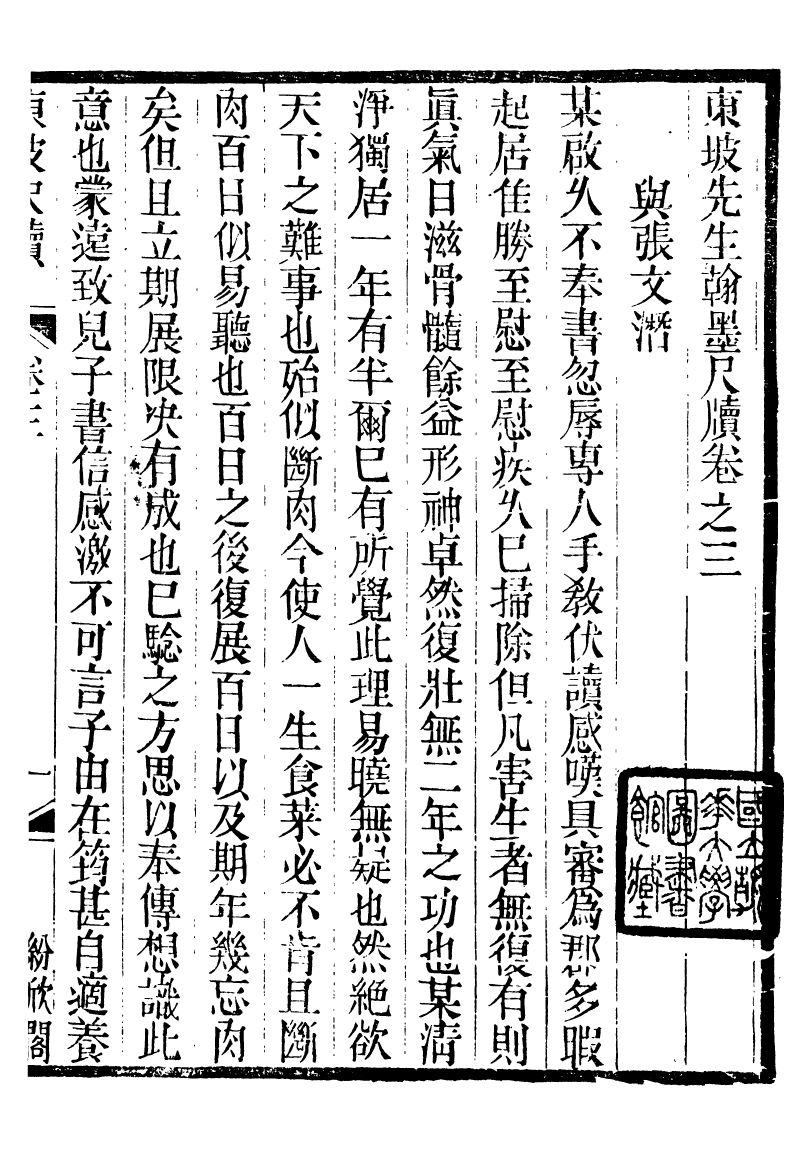 東坡先生翰墨尺牘卷之三
與張文潛
某啟久不奉書忽辱專人手敎伏讀感嘆具審爲郡多暇
起居佳勝至慰至慰疾久已掃除但凡害生者無復有則
眞氣日滋骨髓餘益形神卓然復壯無二年之功也某清
淨獨居一年有半爾已有所覺此理易曉無疑也然絶欲
天下之難事也殆似斷肉今使人一生食菜必不肯且斷
肉百日似易聽也百日之後復展百日以及期年幾忘肉
矣但且立期展限决有成也已騐之方思以奉傳想識此
意也蒙遠致兒子書信感激不可言子由在筠甚自適養
東坡尺牘 卷三 一 紛欣閣
國立清華大學圖書館藏